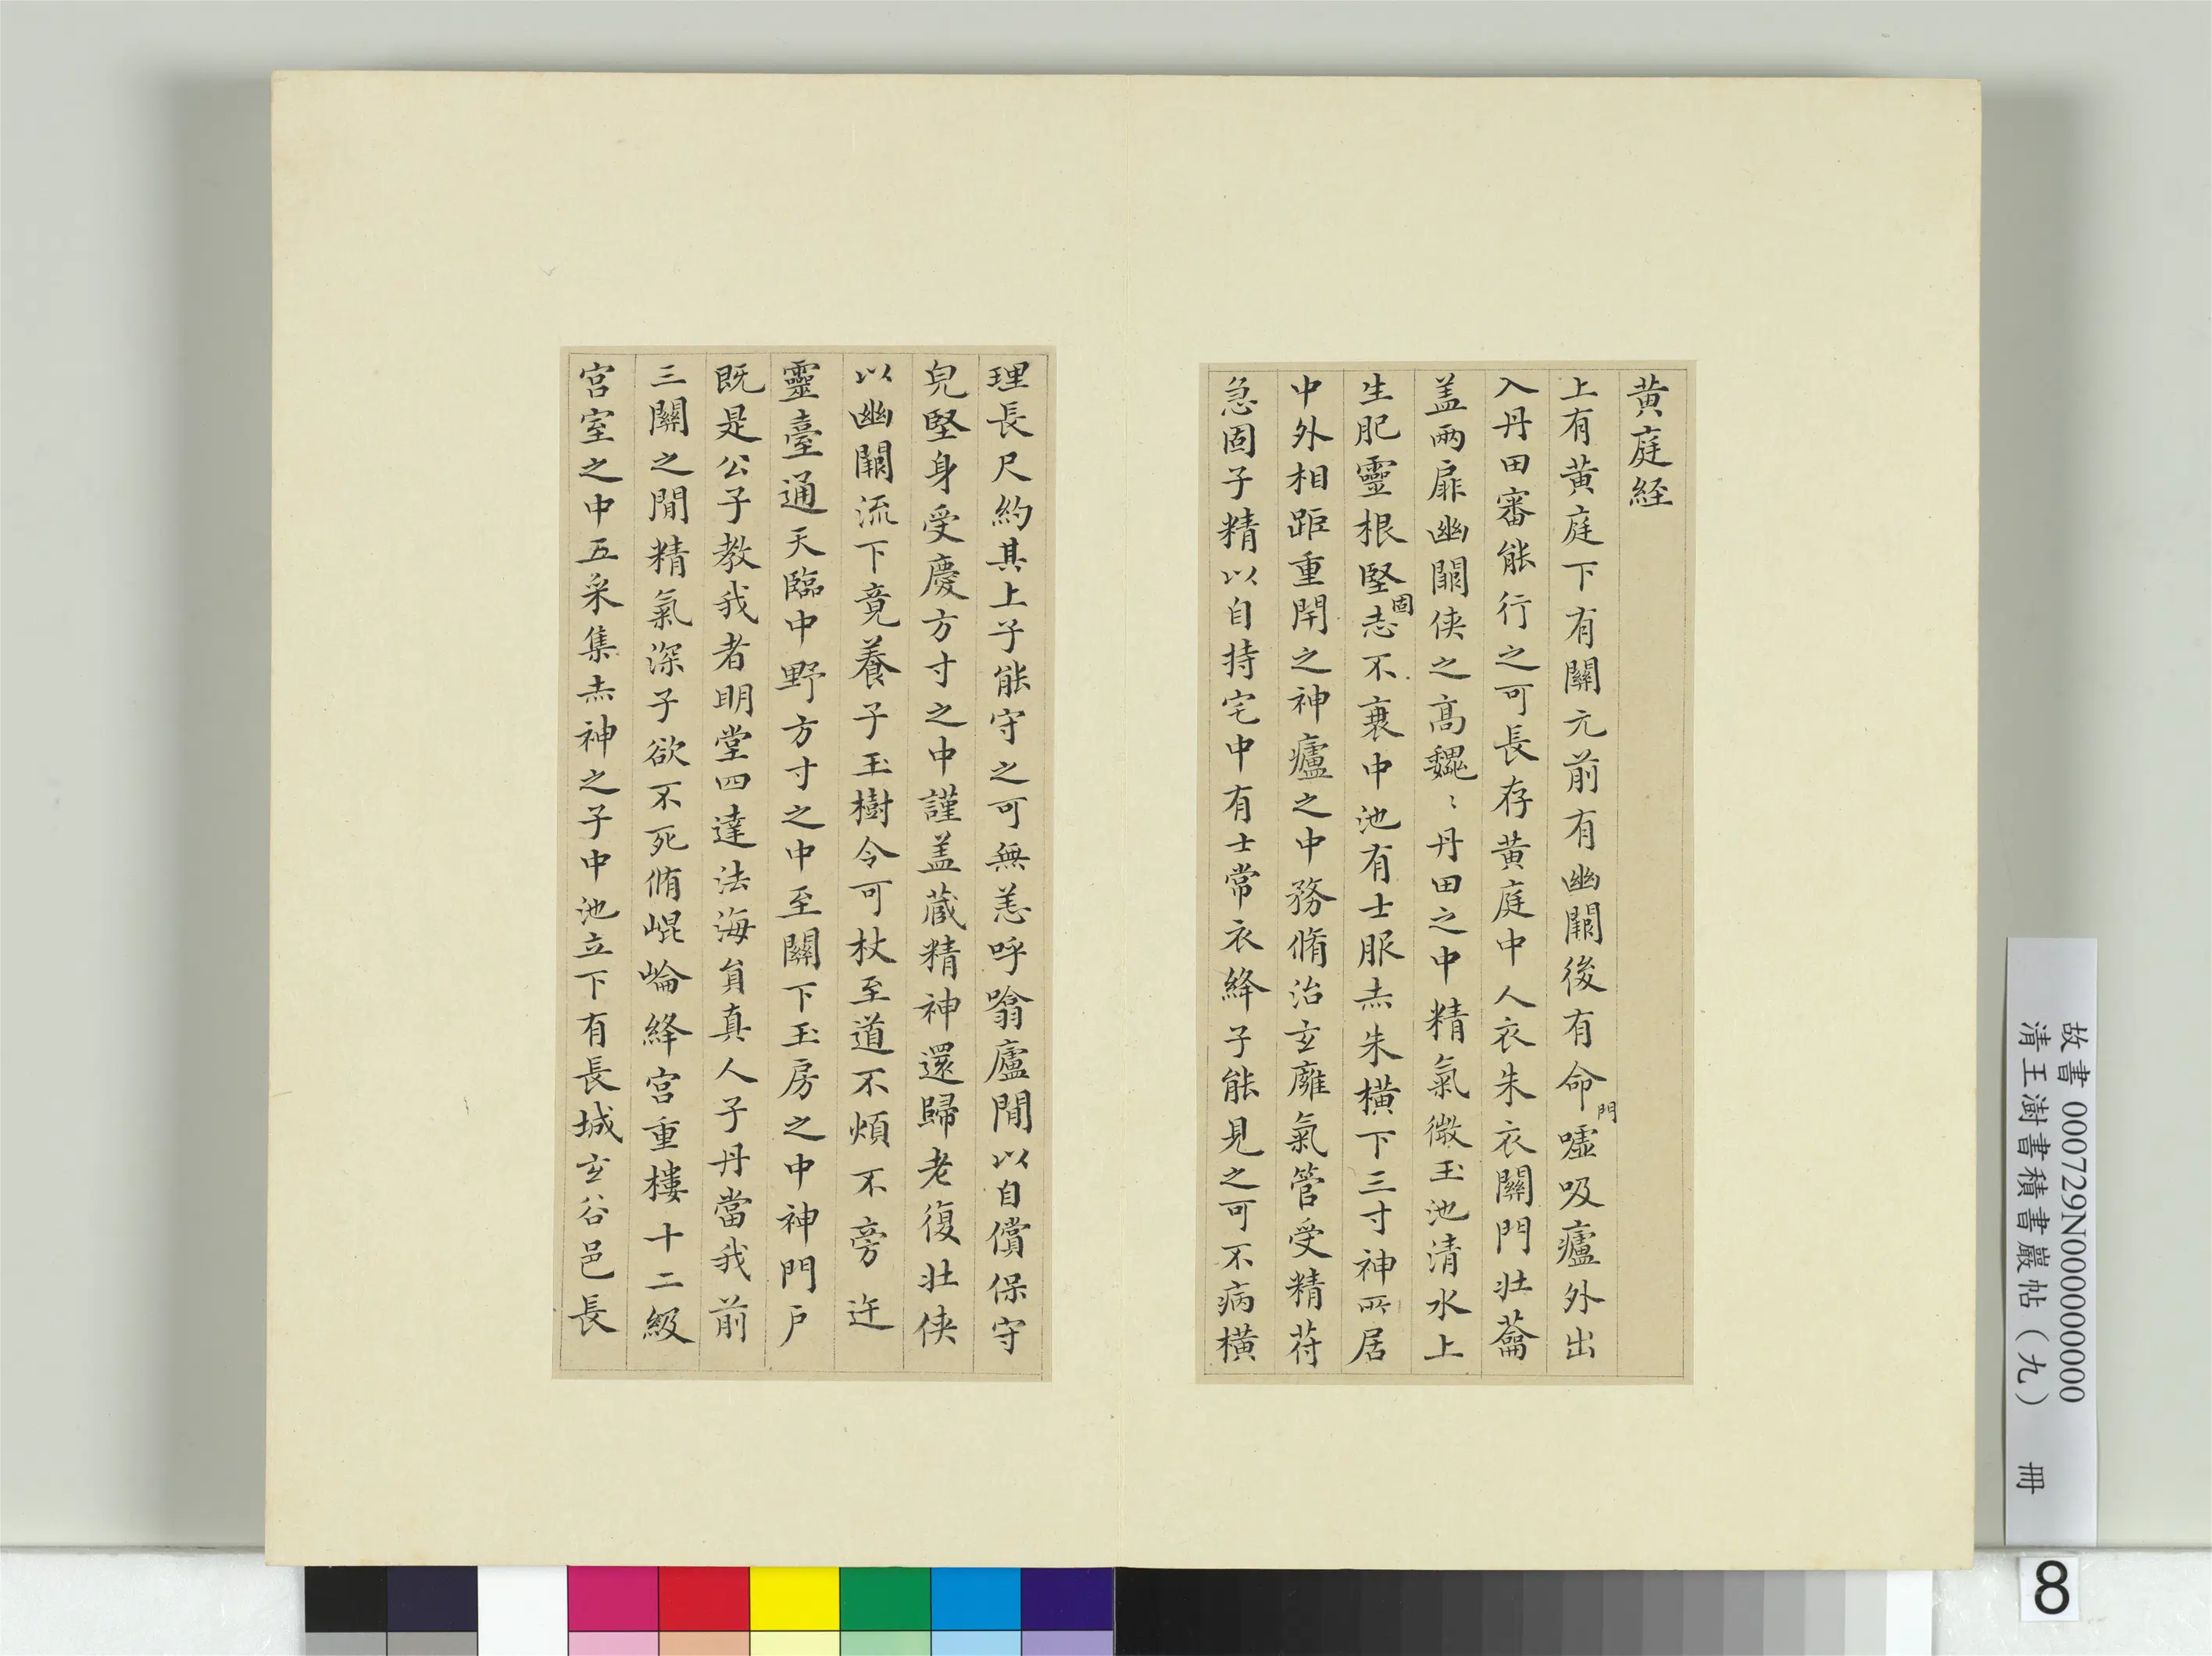 黄庭経
上有黄庭下有關元前有幽闕後有命門噓吸廬外出
入丹田審能行之可長存黄庭中人衣朱衣關門壯蘥
盖兩扉幽闕侠之高魏〻丹田之中精氣微玉池清水上
生肥靈根堅固志不衰中池有士服赤朱橫下三寸神所居
中外相距重閇之神廬之中務脩治玄廱氣管受精苻
急固子精以自持宅中有士常衣絳子能見之可不病橫
理長尺約其上子能守之可無恙呼噏廬閒以自償保守
皃堅身受慶方寸之中謹盖藏精神還歸老復壯侠
以幽闕流下竟養子玉樹令可杖至道不煩不旁迕
靈臺通天臨中野方寸之中至關下玉房之中神門戶
既是公子教我者明堂四達法海貟真人子丹當我前
三關之閒精氣深子欲不死脩崐崘絳宫重樓十二級
宫室之中五采集赤神之子中池立下有長城玄谷邑長
故書 000729N000000000
清王澍書積書巖帖（九） 冊
8